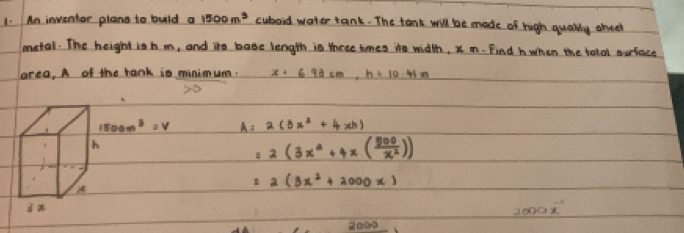 1. An inventor plans to build a 1500 m³ cuboid water tank. The tank will be made of high quality sheet
metal. The height is h m, and its base length is three times its width, x m. Find h when the total surface
area, A of the tank is minimum. x = 6.93 cm, h = 10.41 m
>0
1500m³ = V
A = 2 (3x² + 4xh)
h
= 2 (3x² + 4x (500/x²))
x
= 2 (3x² + 2000 x )
3x
2000 x⁻
2000